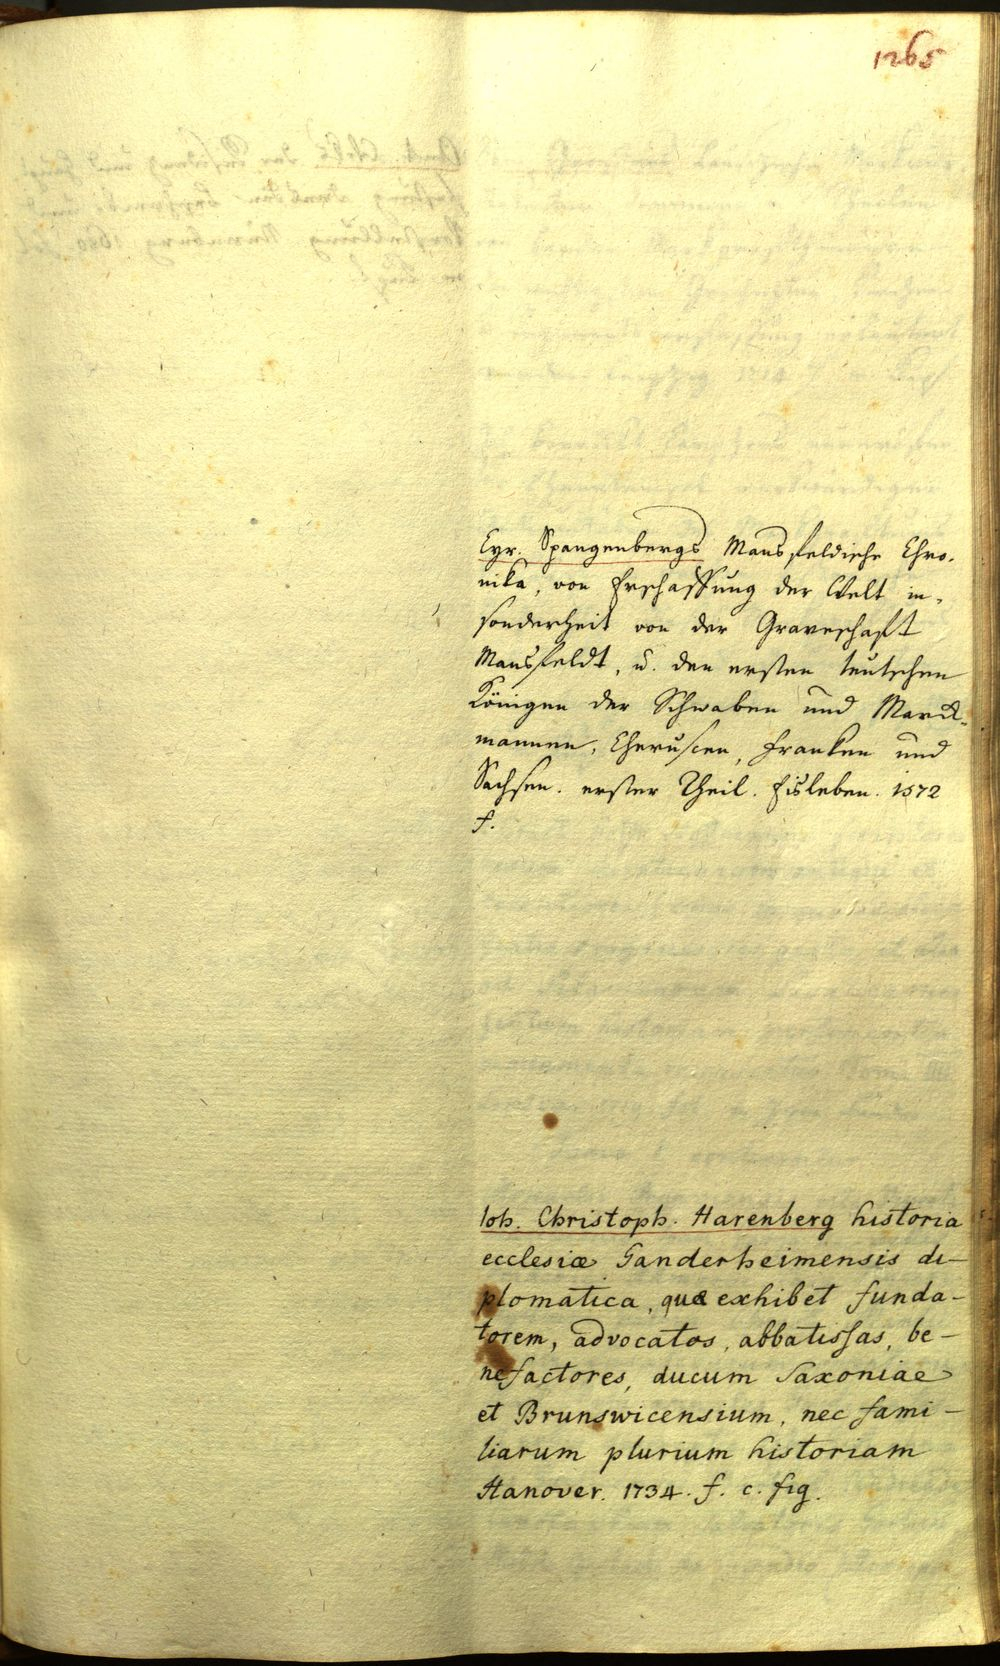 1265
Cyr. Spangenbergs Mansfeldische Chro-
nika, von Erschaffung der Welt in-
sonderheit von der Graveschafft
Mansfeldt, u. den ersten teutschen
Königen der Schwaben und Marck-
mannen, Cheruscen, Francken und
Sachsen. erster Theil. Eisleben. 1572
f.
Ioh. Christoph. Harenberg historia
ecclesiæ Ganderheimensis di-
plomatica, quæ exhibet funda-
torem, advocatos, abbatissas, be-
nefactores, ducum Saxoniae
et Brunswicensium, nec fami-
liarum plurium historiam
Hanover. 1734. f. c. fig.